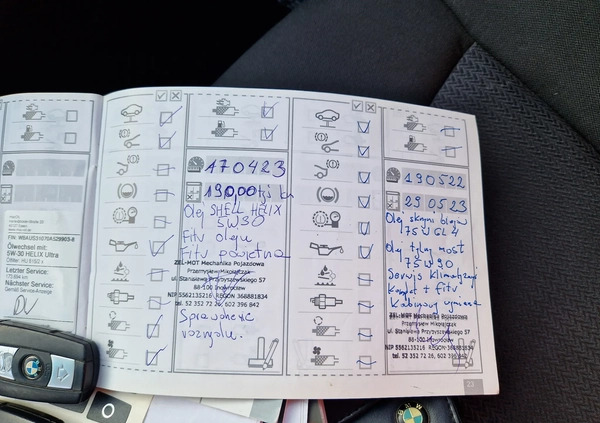 FIN: WBAUS31070A528903-8
Ölwechsel mit:
5W-30 HELIX Ultra
Letzter Service:
Nächster Service:
Gemäß Service-Anzeige
170423
190,00 tyś km
Olej SHELL HELIX
5W30
Filtr oleju
Filtr powietrza
ZEL-MOT Mechanika Pojazdowa
Przemysław Mikołajczak
ul. Stanisława Przybyszewskiego 57
88-100 Inowrocław
NIP 5562135216 REGON 368881834
tel. 52 352 72 26, 602 396 842
Sprawdzenie
rozrządu.
190522
290523
Olej skrzyni biegów
75W GL4
Olej tylny most
75W90
Serwis klimatyzacji
Kabinowy wymiana
ZEL-MOT Mechanika Pojazdowa
Przemysław Mikołajczak
ul. Stanisława Przybyszewskiego 57
88-100 Inowrocław
NIP 5562135216 REGON 368881834
tel. 52 352 72 26, 602 396 842
23